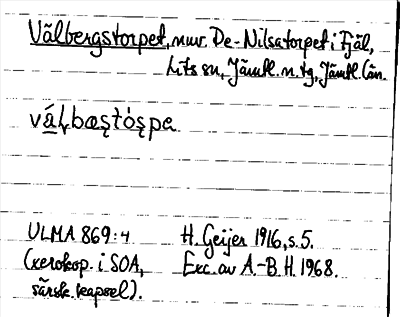 Välbergstorpet, nuv. De-Nilsatorpet i Fjäl,
Lits sn, Jämtl. n. tg, Jämtl. län.
vá̱ḷbœʂtóʂpe
ULMA 869:4 H. Geijer 1916, s. 5.
(xerokop. i SOA, Exc. av A.-B. H. 1968.
särsk. kapsel).